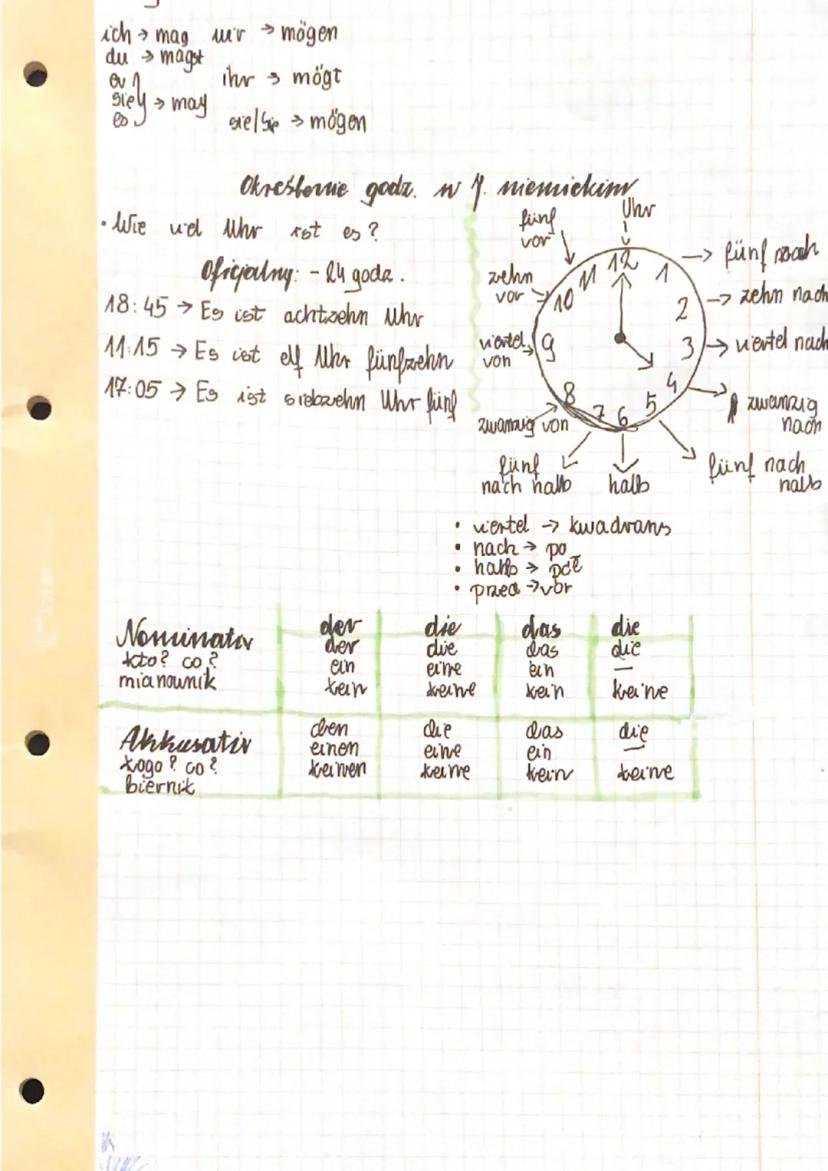 ich → mag wir → mögen
du → magst
er
sie → mag
es
ihr → mögt
sie/Sie → mögen
Określenie godz. w j. niemieckim
• Wie viel Uhr ist es?
Oficjalny: - 24 godz.
18:45 → Es ist achtzehn Uhr
11:15 → Es ist elf Uhr fünfzehn
17:05 → Es ist siebzehn Uhr fünf
Uhr
fünf vor
zehn vor
viertel von
zwanzig von
fünf nach halb
halb
fünf nach halb
zwanzig nach
viertel nach
zehn nach
fünf nach
12 1 2 3 4 5 6 7 8 9 10 11
• viertel → kwadrans
• nach → po
• halb → pół
• przed → vor
der die das die
Nominativ der die das die
kto? co? ein eine ein —
mianownik kein keine kein keine
Akkusativ den die das die
kogo? co? einen eine ein —
biernik keinen keine kein keine